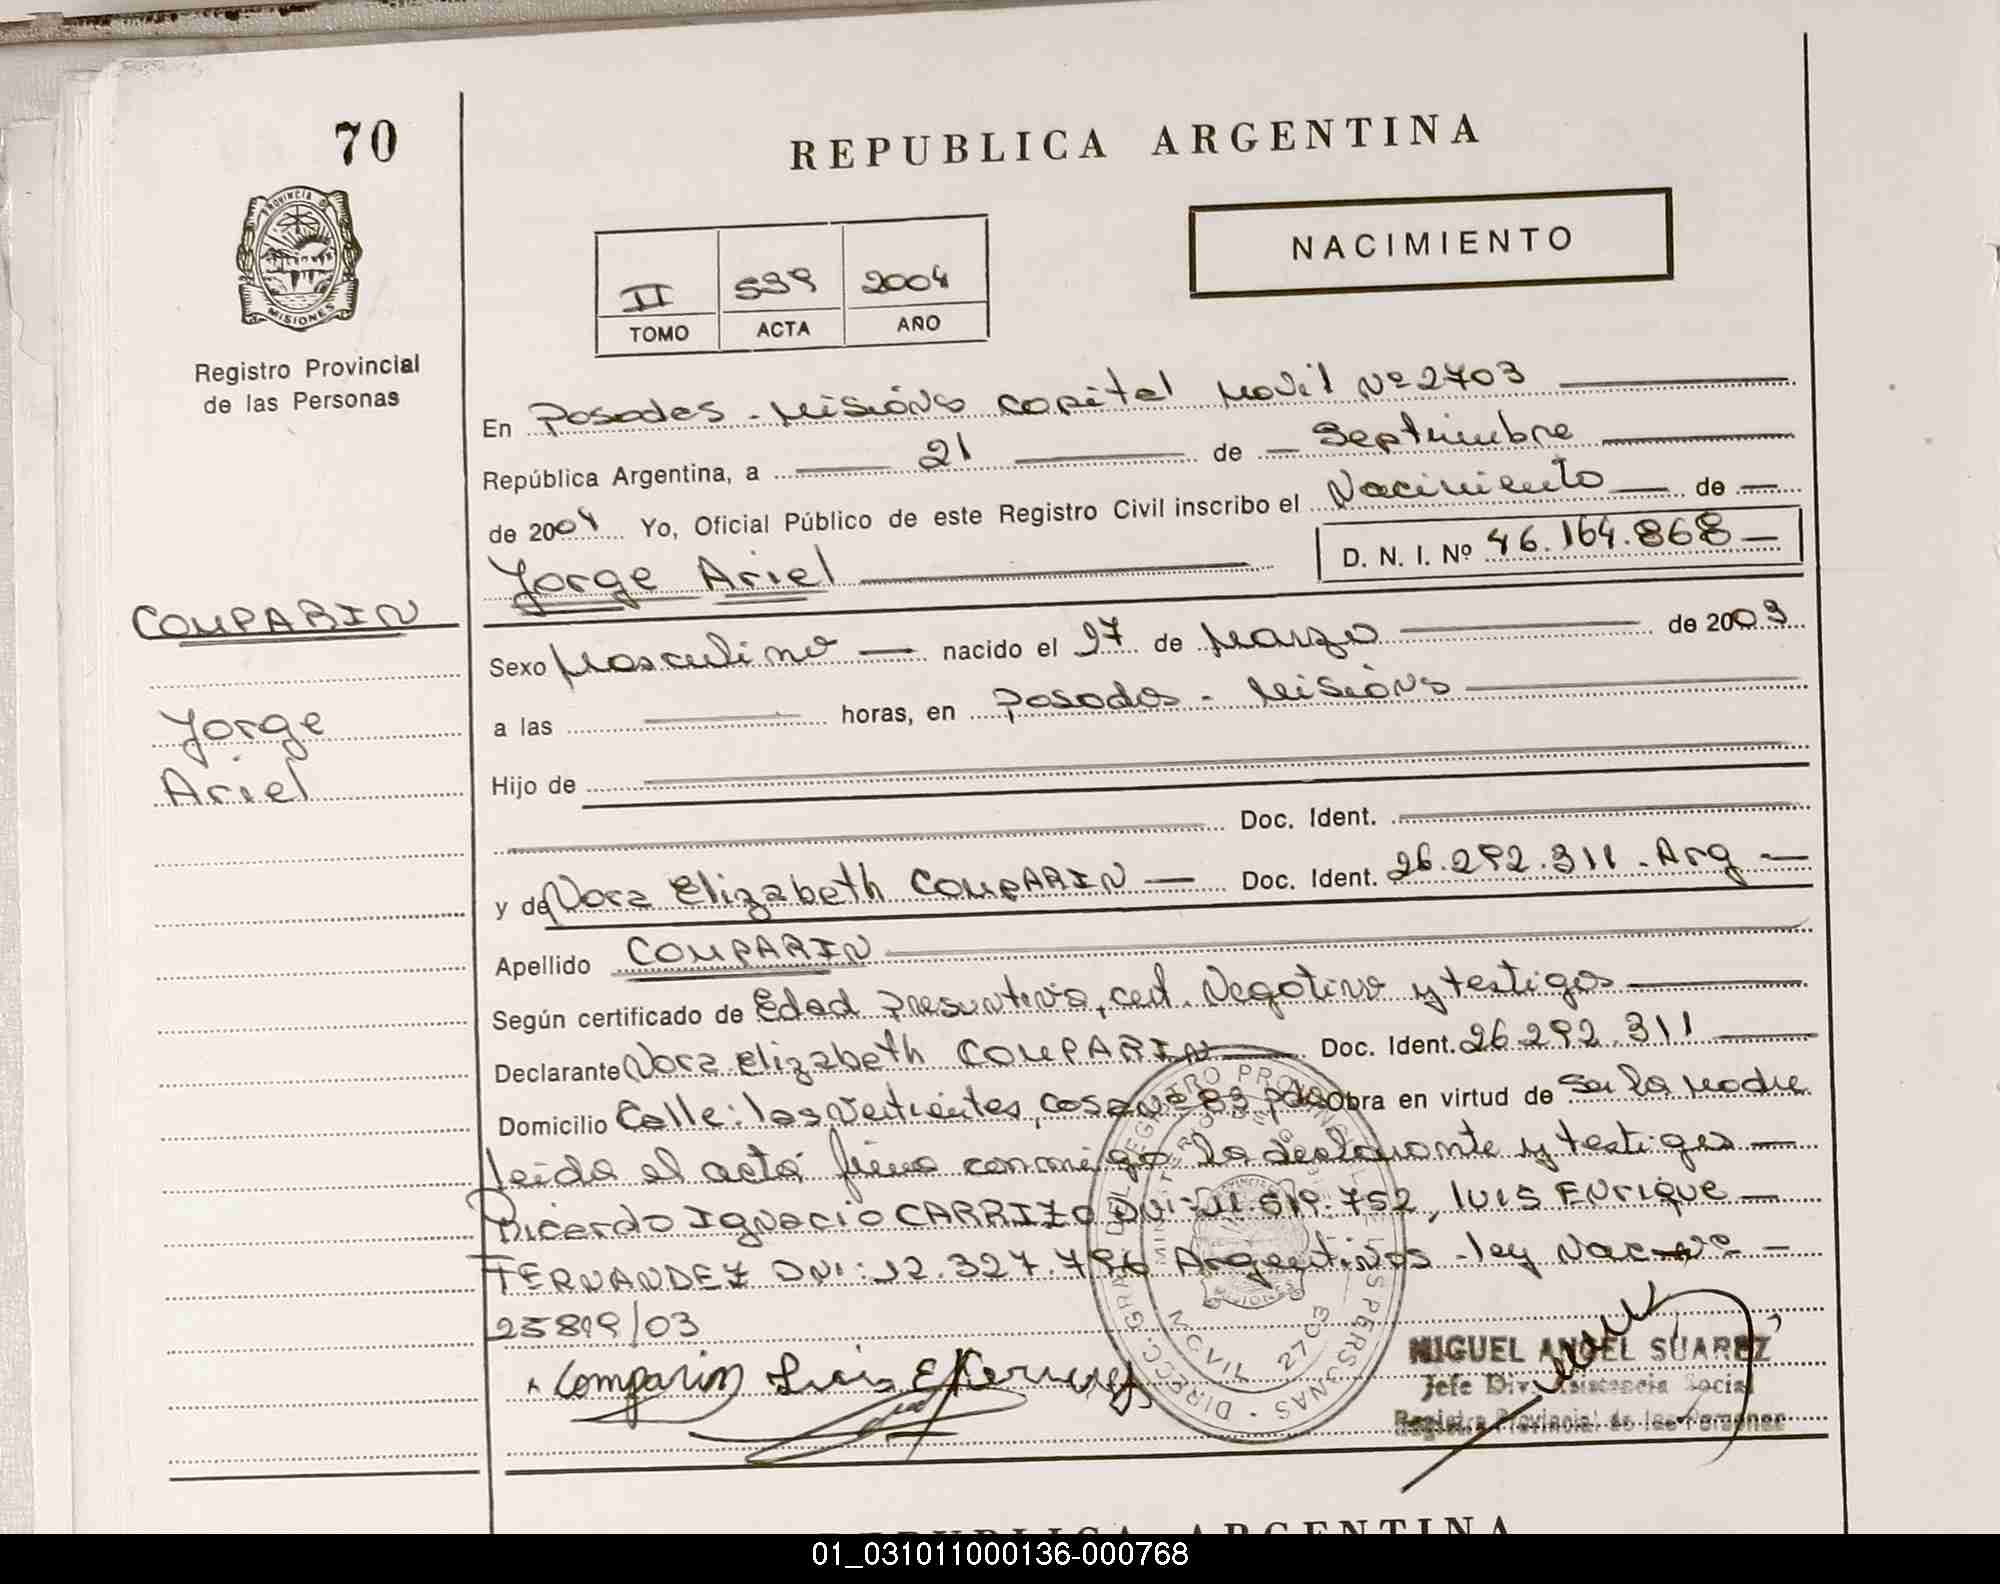 70
REPUBLICA ARGENTINA
PROVINCIA D
MISIONES
NACIMIENTO
II 539 2004
TOMO ACTA AÑO
Registro Provincial
de las Personas
En Posadas - Misiones Capital Movil Nº 2703
República Argentina, a 21 de Septiembre
de 2004 Yo, Oficial Público de este Registro Civil inscribo el Nacimiento de
Jorge Ariel D. N. I. Nº 46.164.868
COMPARIN
Sexo Masculino nacido el 27 de Marzo de 2003
Jorge
a las horas, en Posadas - Misiones
Ariel
Hijo de
Doc. Ident.
y de Nora Elizabeth COMPARIN Doc. Ident. 26.292.311 - Arg
Apellido COMPARIN
Según certificado de Edad Presuntiva, cert. Negativo y testigos
Declarante Nora Elizabeth COMPARIN Doc. Ident. 26.292.311
Domicilio Calle: los Vertientes, casa nº 83 Pdas Obra en virtud de Ser la Madre
leida el acta firma conmigo la declarante y testigos
Ricardo Ignacio CARRIZO DNI: 11.619.752, Luis Enrique
FERNANDEZ DNI: 12.327.796 Argentinos - ley Nac nº
25819/03
Comparin Luis E Fernandez
MOVIL 2703
MIGUEL ANGEL SUAREZ
Jefe Div. Asistencia Social
Registro Provincial de las Personas
REPUBLICA ARGENTINA
01_031011000136-000768